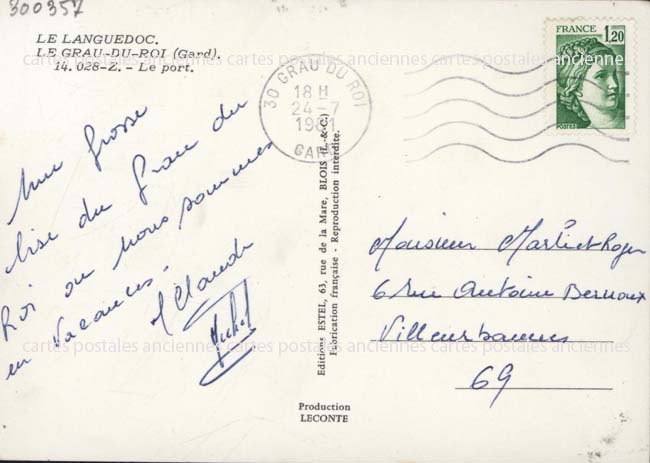 300357
LE LANGUEDOC.
LE GRAU-DU-ROI (Gard).
14. 028-Z. - Le port.
Une grosse
bise du Grau du
Roi ou nous sommes
en Vacances.
M Claude
Michel
Editions ESTEL, 63, rue de la Mare, BLOIS (L.-&-C.)
Fabrication française - Reproduction interdite.
Production
LECONTE
30 GRAU DU ROI
18 H
24-7
1981
GARD
FRANCE
1,20
POSTES
Monsieur Roger
6 rue Antoine Bernoux
Villeurbannes
69
cartes postales anciennes cartes postales anciennes cartes postales anciennes
cartes postales anciennes cartes postales anciennes cartes postales anciennes